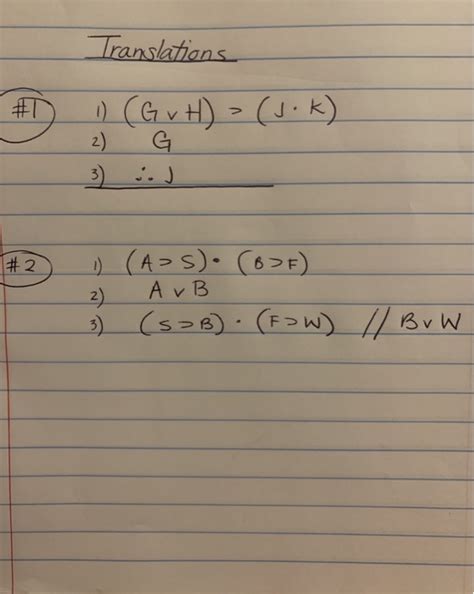 Translations
#1 1) (G v H) > (J · K)
2) G
3) ∴ J
#2 1) (A ⊃ S) · (B ⊃ F)
2) A v B
3) (S ⊃ B) · (F ⊃ W) // B v W